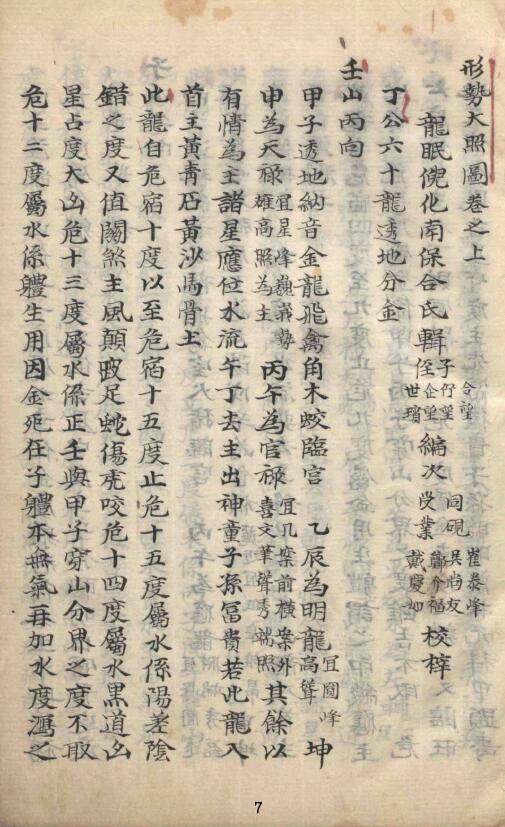 形勢大照圖卷之上
龍眠倪化南保合氏輯 侄 子 企望 仔望 世瑠 令望 編次 受業 同硯 鄭介福 吳尚友 戴慶如 崔泰峰 校梓
丁公六十龍透地分金
壬山丙向
甲子透地納音金龍飛禽角木蛟臨宮 乙辰為明龍 宜圓峰高聳 坤
申為天祿 宜星峰巍峩勢雄高照為主 丙午為官祿 宜几案前橫案外喜文華聳秀端照 其餘以
有情為主諸星應位水流午丁去主出神童子孫冨貴若此龍入
首主黃青石黃沙馬骨土
子
此龍自危宿十度以至危宿十五度止危十五度屬水係陽差陰
錯之度又值關煞主風顛跛足蛇傷虎咬危十四度屬水黑道凶
星占度大凶危十三度屬水係正壬與甲子穿山分界之度不取
危十二度屬水係軆生用因金死在子軆本無氣再加水度瀉之
7